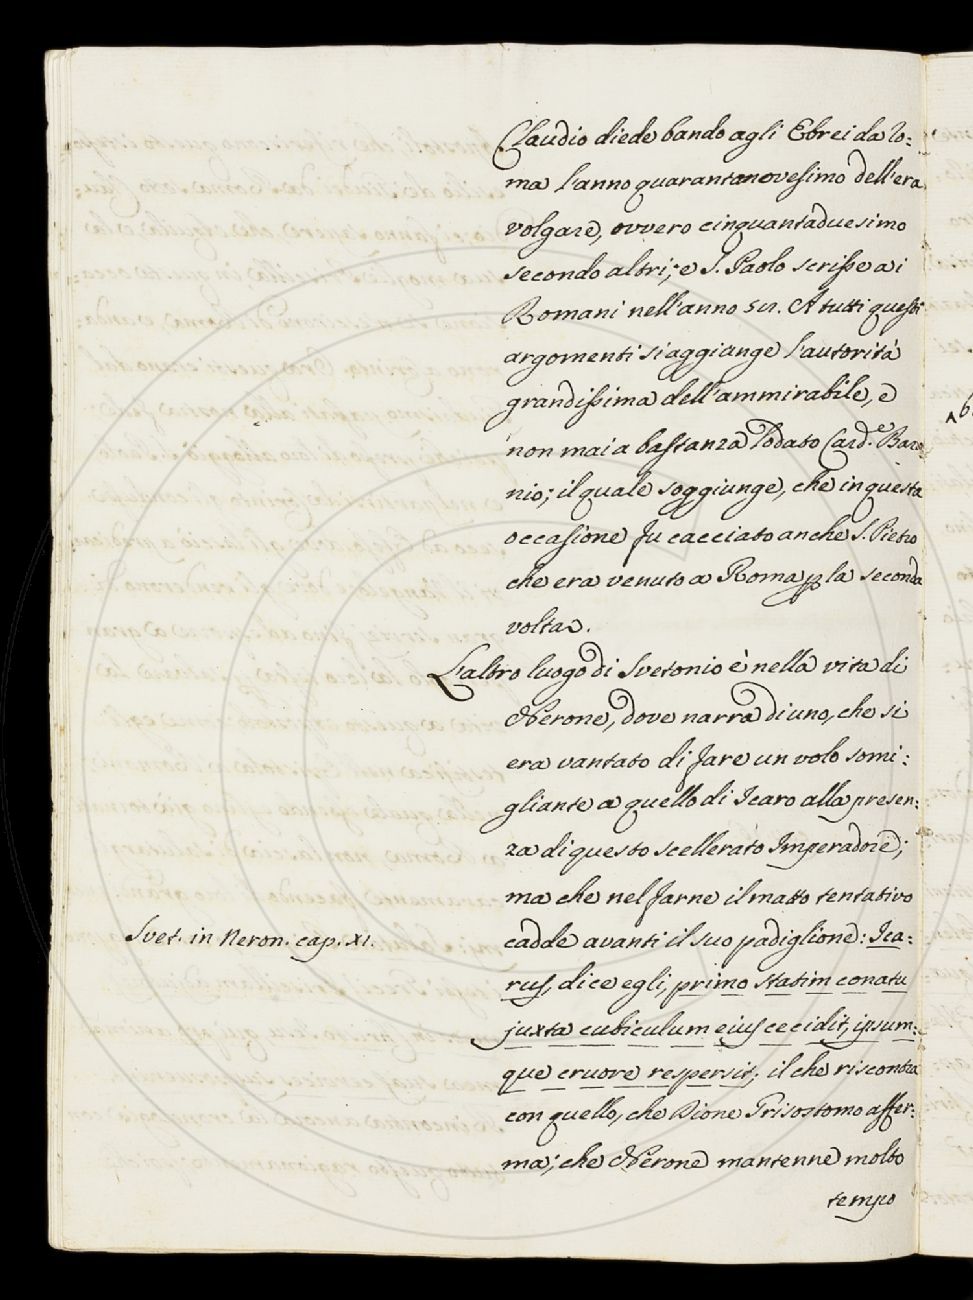 Claudio diede bando agli Ebrei da Ro:
ma l'anno quarantanovesimo dell'era
volgare, ovvero cinquantaduesimo
secondo altri; e S. Paolo scrisse ai
Romani nell'anno 58. A tutti questi
argomenti si aggiunge l'autorità
grandissima dell'ammirabile, e
non mai a bastanza lodato Card.e Baro
nio; il quale soggiunge, che in questa
occasione fu cacciato anche S. Pietro
che era venuto a Roma p la seconda
volta.
L'altro luogo di Svetonio è nella vita di
Nerone, dove narra di uno, che si
era vantato di fare un volo somi:
gliante a quello di Icaro alla presen:
za di questo scellerato Imperadore;
ma che nel farne il matto tentativo
Svet. in Neron. cap. XI.
cadde avanti il suo padiglione: Ica:
rus, dice egli, primo statim conatu
juxta cubiculum eius cecidit, ipsum:
que cruore respersit; il che riscontra
con quello, che Dione Grisostomo affer:
ma; che Nerone mantenne molto
tempo